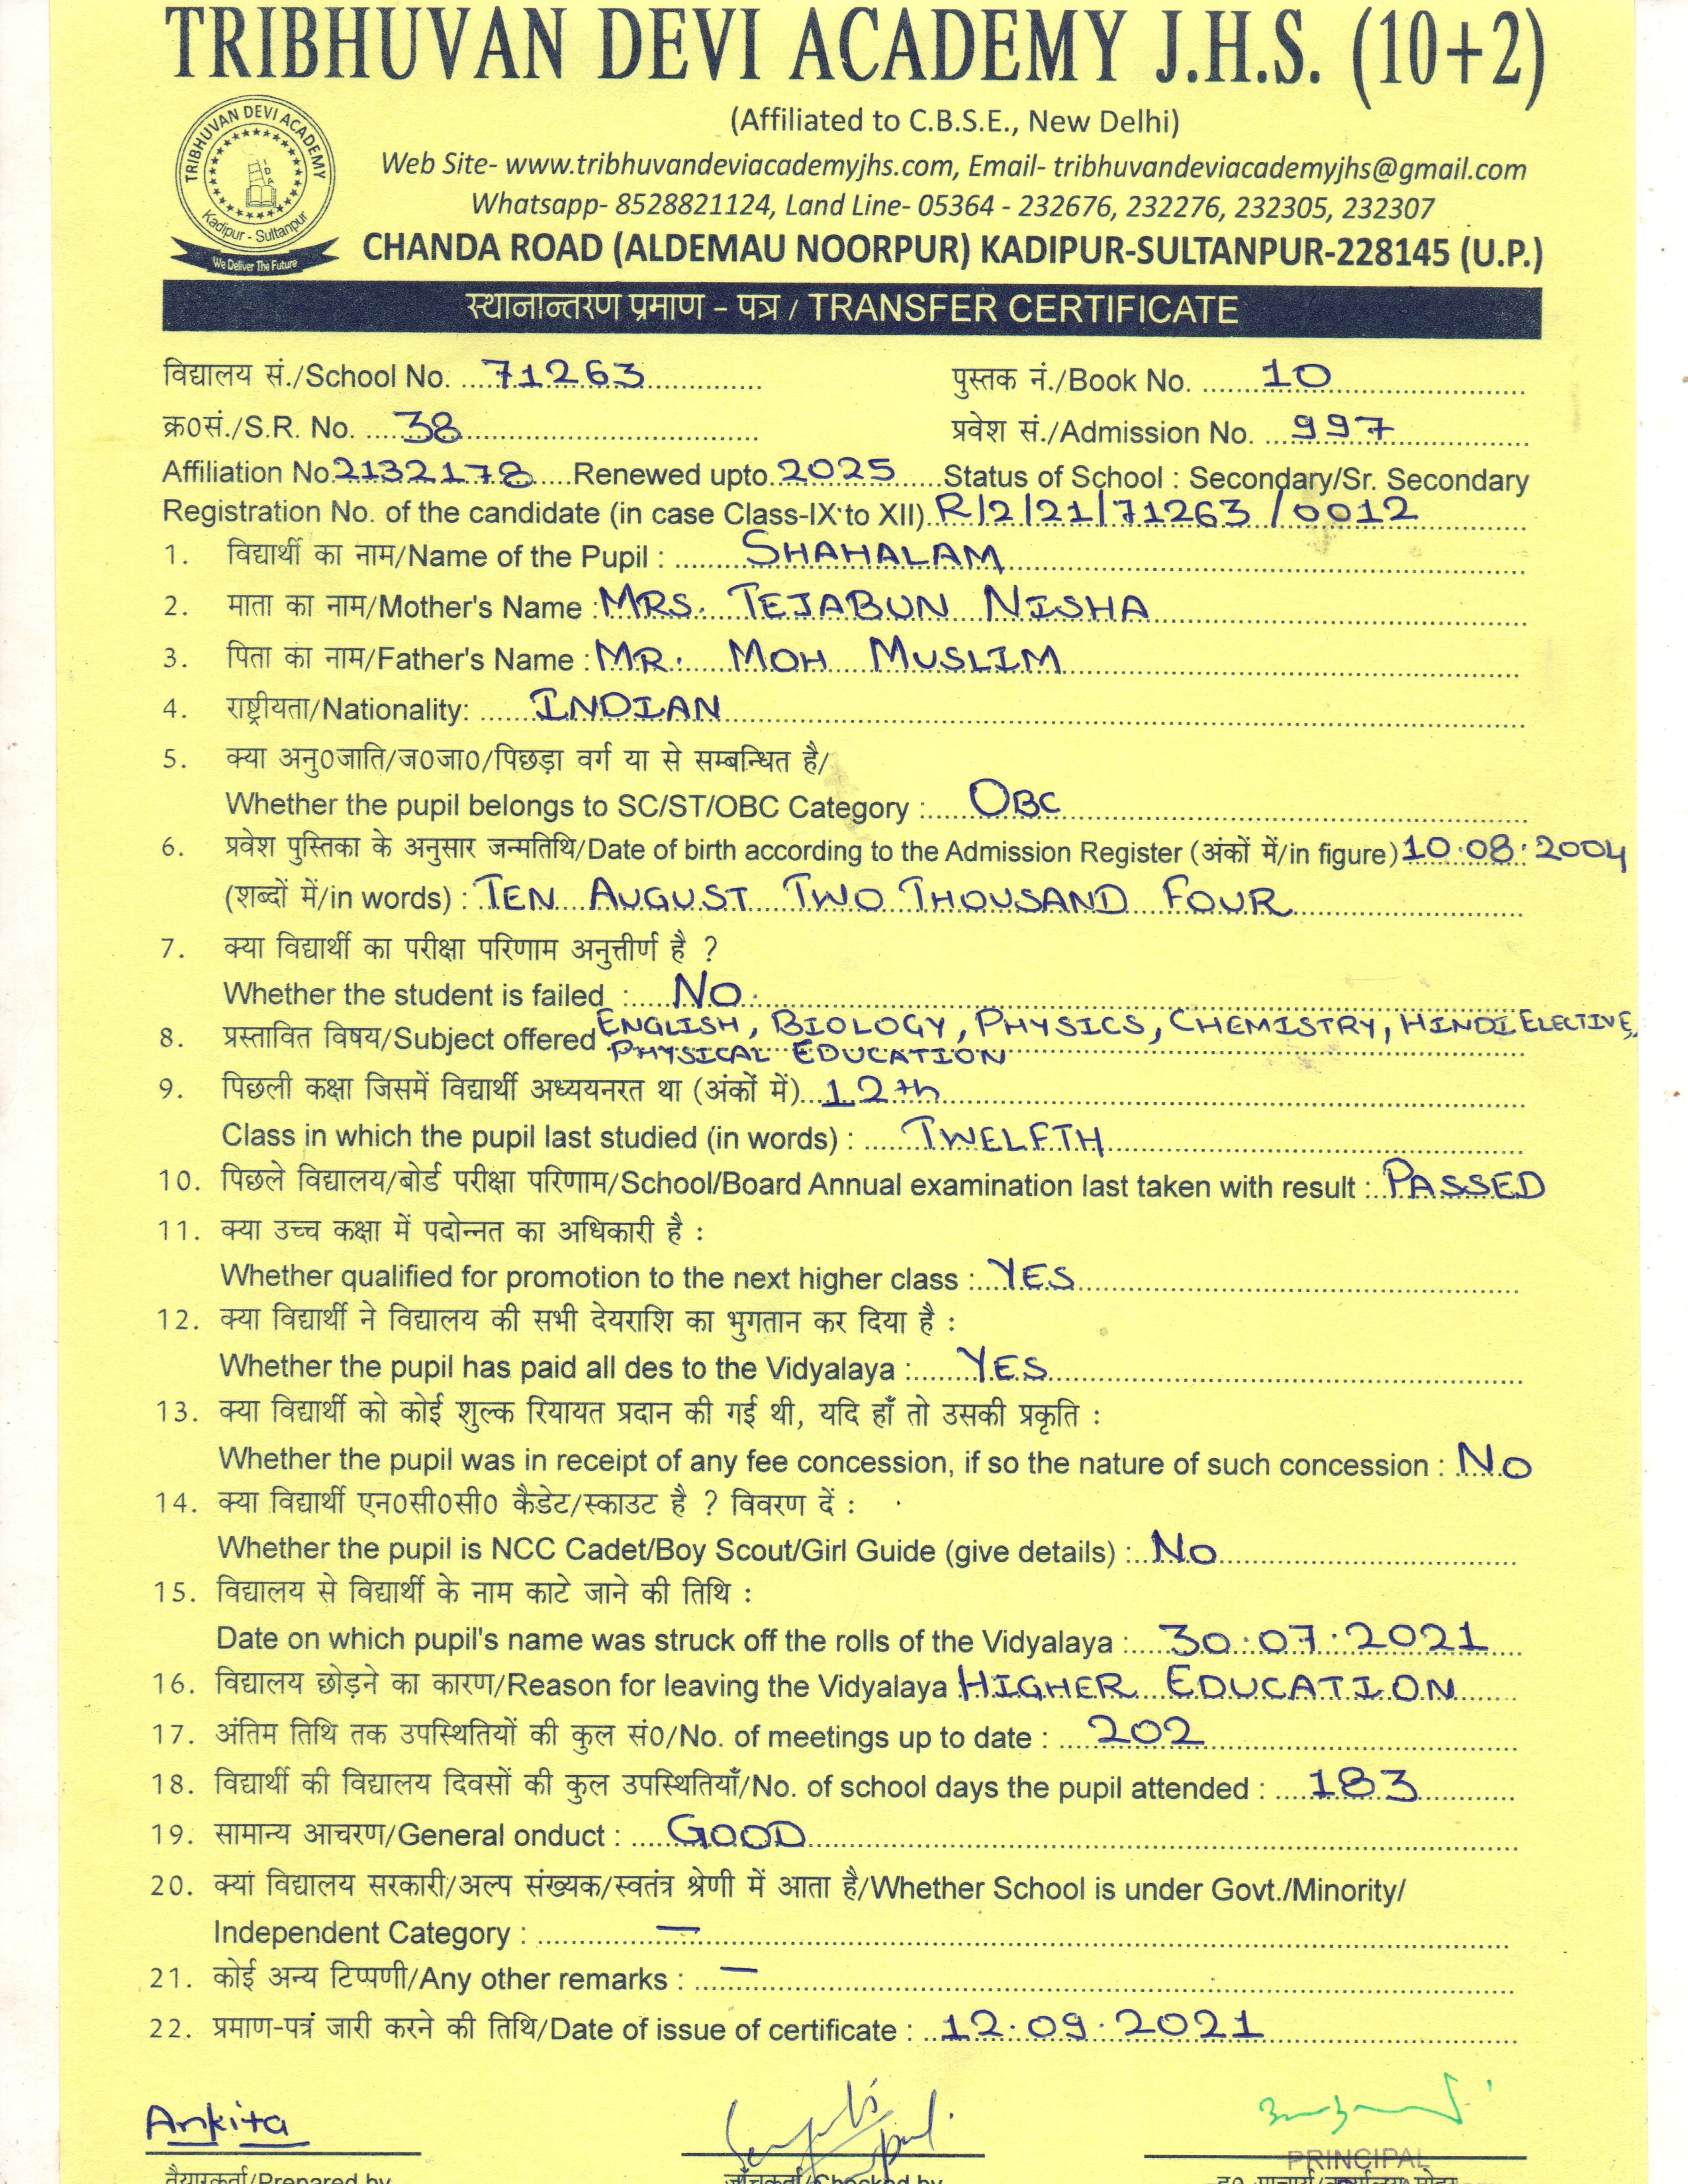 TRIBHUVAN DEVI ACADEMY J.H.S. (10+2)
(Affiliated to C.B.S.E., New Delhi)
Web Site- www.tribhuvandeviacademyjhs.com, Email- tribhuvandeviacademyjhs@gmail.com
Whatsapp- 8528821124, Land Line- 05364 - 232676, 232276, 232305, 232307
CHANDA ROAD (ALDEMAU NOORPUR) KADIPUR-SULTANPUR-228145 (U.P.)
TRIBHUVAN DEVI ACADEMY
Kadipur - Sultanpur
We Deliver The Future
स्थानान्तरण प्रमाण - पत्र / TRANSFER CERTIFICATE
विद्यालय सं./School No. 71263 पुस्तक नं./Book No. 10
क्र०सं./S.R. No. 38 प्रवेश सं./Admission No. 997
Affiliation No. 2132178 Renewed upto 2025 Status of School : Secondary/Sr. Secondary
Registration No. of the candidate (in case Class-IX to XII) R/2/21/71263/0012
1. विद्यार्थी का नाम/Name of the Pupil : SHAHALAM
2. माता का नाम/Mother's Name : MRS. TEJABUN NISHA
3. पिता का नाम/Father's Name : MR. MOH MUSLIM
4. राष्ट्रीयता/Nationality: INDIAN
5. क्या अनु०जाति/ज०जा०/पिछड़ा वर्ग या से सम्बन्धित है/
Whether the pupil belongs to SC/ST/OBC Category : OBC
6. प्रवेश पुस्तिका के अनुसार जन्मतिथि/Date of birth according to the Admission Register (अंकों में/in figure) 10.08.2004
(शब्दों में/in words) : TEN AUGUST TWO THOUSAND FOUR
7. क्या विद्यार्थी का परीक्षा परिणाम अनुत्तीर्ण है ?
Whether the student is failed : NO
8. प्रस्तावित विषय/Subject offered ENGLISH, BIOLOGY, PHYSICS, CHEMISTRY, HINDI ELECTIVE,
PHYSICAL EDUCATION
9. पिछली कक्षा जिसमें विद्यार्थी अध्ययनरत था (अंकों में) 12th
Class in which the pupil last studied (in words) : TWELFTH
10. पिछले विद्यालय/बोर्ड परीक्षा परिणाम/School/Board Annual examination last taken with result : PASSED
11. क्या उच्च कक्षा में पदोन्नत का अधिकारी है :
Whether qualified for promotion to the next higher class : YES
12. क्या विद्यार्थी ने विद्यालय की सभी देयराशि का भुगतान कर दिया है :
Whether the pupil has paid all des to the Vidyalaya : YES
13. क्या विद्यार्थी को कोई शुल्क रियायत प्रदान की गई थी, यदि हाँ तो उसकी प्रकृति :
Whether the pupil was in receipt of any fee concession, if so the nature of such concession : NO
14. क्या विद्यार्थी एन०सी०सी० कैडेट/स्काउट है ? विवरण दें :
Whether the pupil is NCC Cadet/Boy Scout/Girl Guide (give details) : NO
15. विद्यालय से विद्यार्थी के नाम काटे जाने की तिथि :
Date on which pupil's name was struck off the rolls of the Vidyalaya : 30.07.2021
16. विद्यालय छोड़ने का कारण/Reason for leaving the Vidyalaya HIGHER EDUCATION
17. अंतिम तिथि तक उपस्थितियों की कुल सं०/No. of meetings up to date : 202
18. विद्यार्थी की विद्यालय दिवसों की कुल उपस्थितियाँ/No. of school days the pupil attended : 183
19. सामान्य आचरण/General onduct : GOOD
20. क्या विद्यालय सरकारी/अल्प संख्यक/स्वतंत्र श्रेणी में आता है/Whether School is under Govt./Minority/
Independent Category : —
21. कोई अन्य टिप्पणी/Any other remarks : —
22. प्रमाण-पत्र जारी करने की तिथि/Date of issue of certificate : 12.09.2021
Ankita
PRINCIPAL
तैयारकर्ता/Prepared by जाँचकर्ता/Checked by